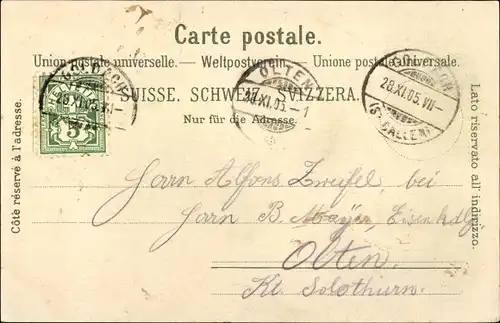 Carte postale.
Union postale universelle. — Weltpostverein. — Unione postale universale.
SUISSE. SCHWEIZ. SVIZZERA.
Nur für die Adresse.
Côté réservé à l'adresse.
Lato riservato all' indirizzo.
HELVETIA
5
GOLDACH
28.XI.05.VII
OLTEN
28.XI.05.
GOLDACH
28.XI.05.VII—
(ST. GALLEN)
Herrn Alfons Zweifel, bei
Herrn B. Mayer, Eisenhdlg
Olten.
Kt. Solothurn.